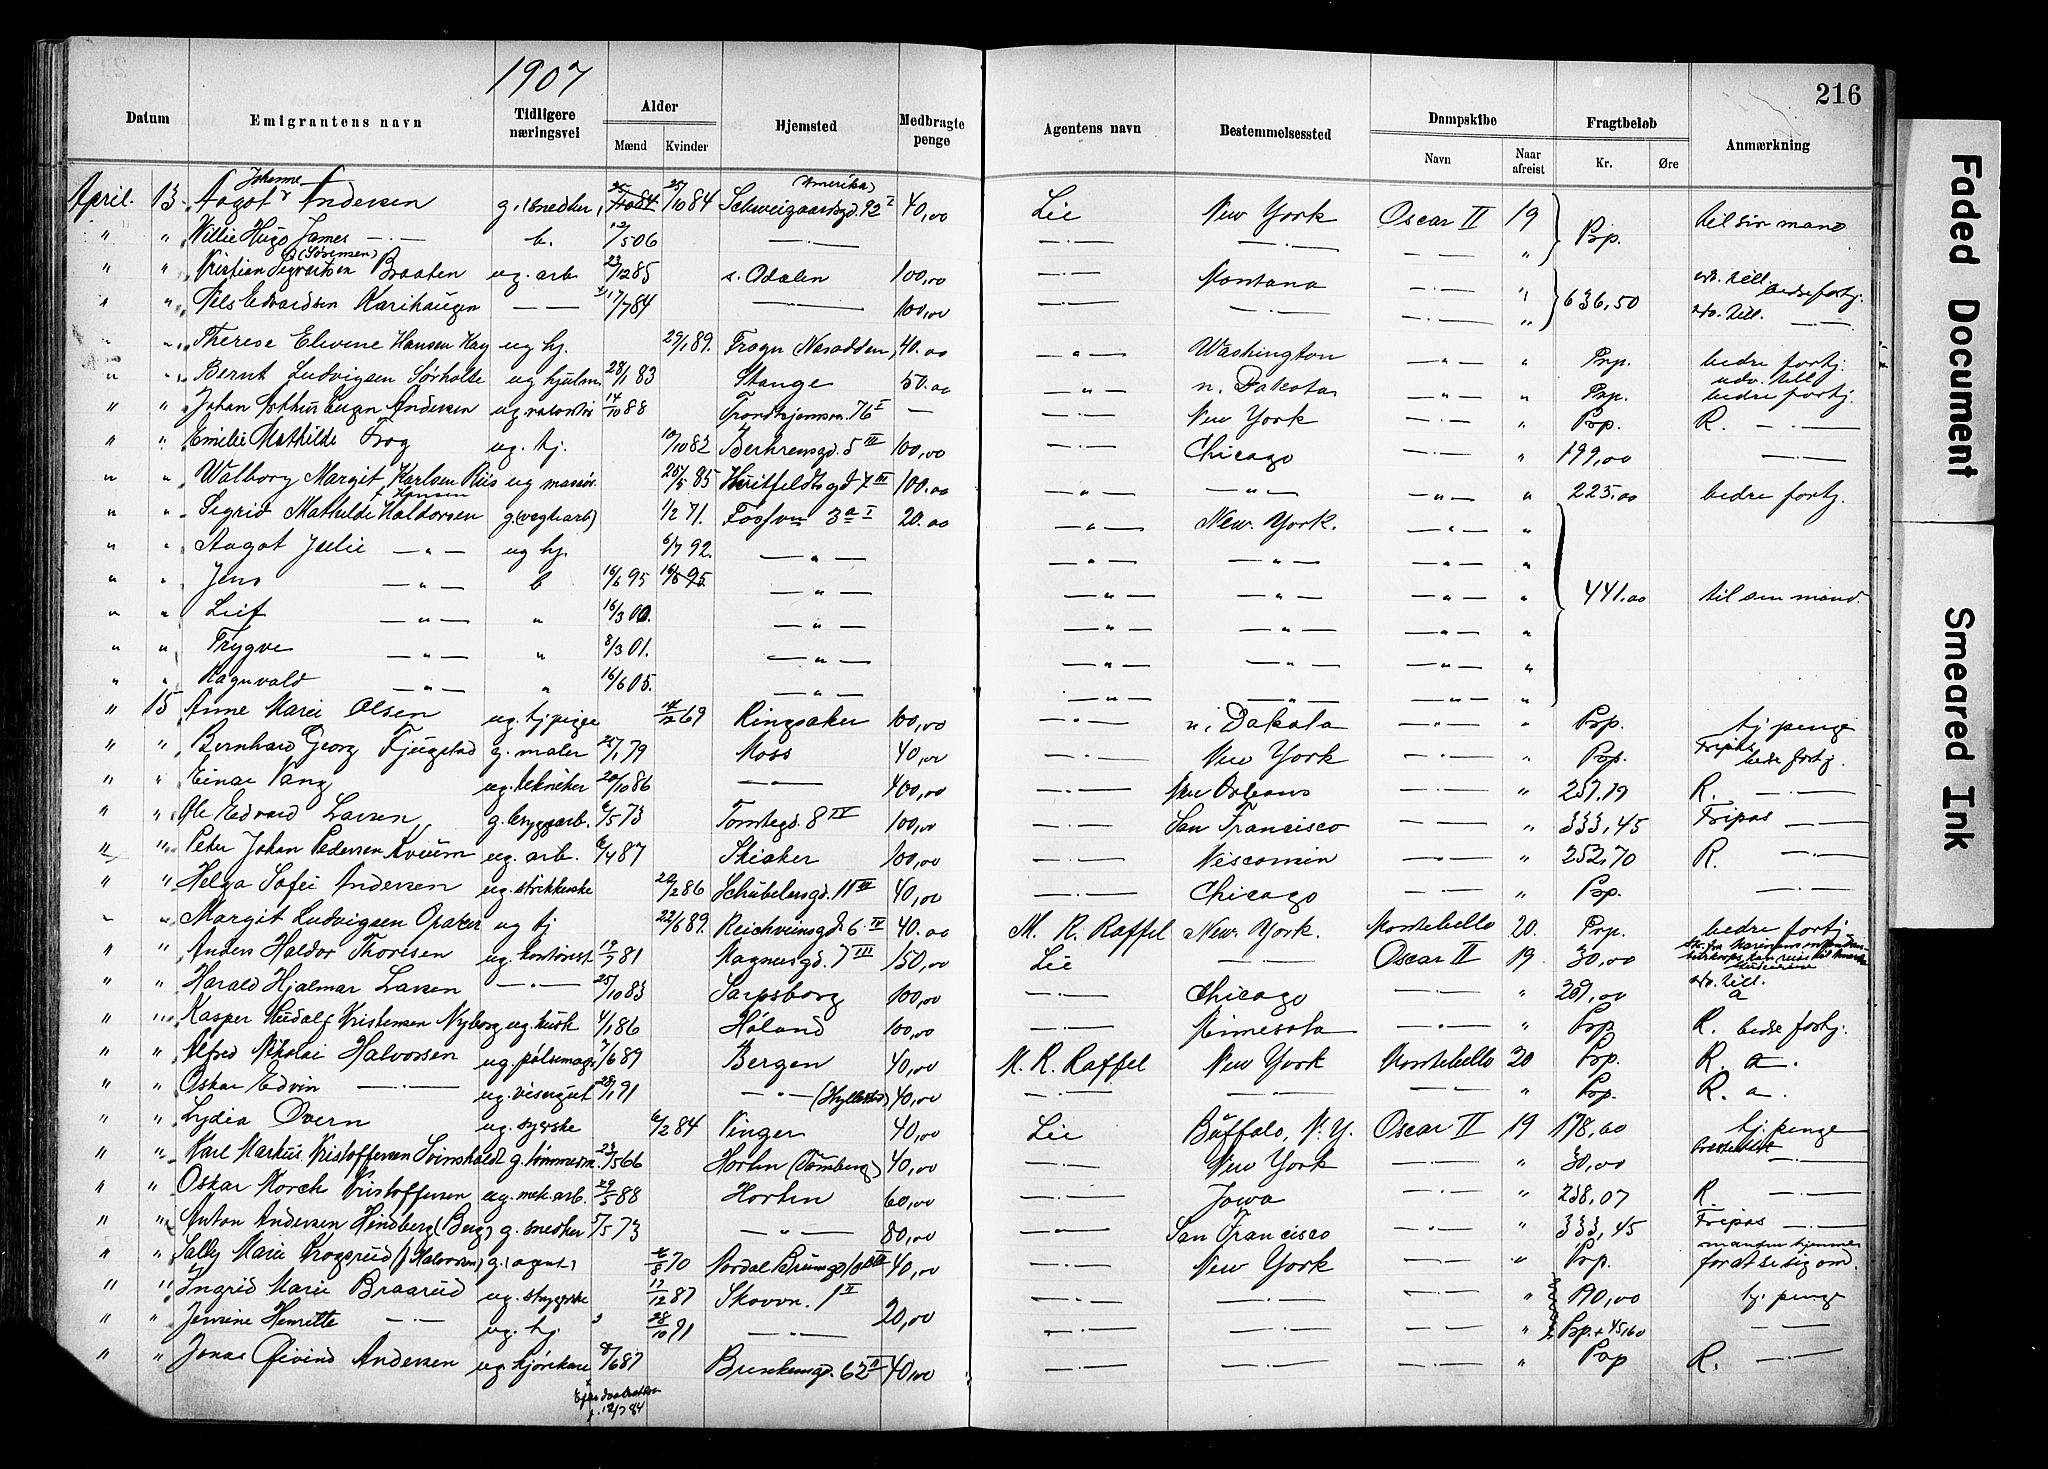 1907
216
Datum | Emigrantens navn | Tidligere næringsvei | Alder Mænd Kvinder | Hjemsted | Medbragte penge | Agentens navn | Bestemmelsessted | Dampskibe Navn Naar afreist | Fragtbeløb Kr. Øre | Anmærkning
April. 13. Aagot Johanne Andersen g. snedker, 25/10 84 Schweigaardsgd. 92 I (Amerika) 40,00 Lie New York Oscar II 19 Pp. til sin mand
" " Willie Hugo James — " — b. 12/5 06 — " — — " — — " — — " — "
" " Kristian Sigvartsen (Sørensen) Braaten ug. arb. 23/12 85 s. Odalen 100,00 — " — Montana — " — " 636,50 udv. till. bedre fortj.
" " Nils Edvardsen Karihaugen — — 17/7 84 — " — 100,00 — " — — " — — " — " udv. till. — " —
" " Therese Elevine Hansen Hay ug hj. 29/1 89. Frogn Nesodden, 40.00 — " — Washington — " — " Prp. bedre fortj.
" " Bernt Ludvigsen Sørholte ug hjulm. 28/1 83 Stange 50.00 — " — n. Dakota — " — " Prp. udv. till bedre fortj.
" " Johan Arthur Eugen Andersen ug 14/10 88 Trondhjemsvn. 76 I — — " — New York — " — " Pp. R. — " —
" " Emilie Mathilde Frog ug. hj. 10/10 82 Behrensgd. 5 III 100,00 — " — Chicago — " — " 199,00 — " —
" " Walborg Margit Karlsen Riis ug massør 25/5 85 Huitfeldtsgd 7 III 100.00 — " — — " — — " — " 225.00 bedre fortj.
" " Sigrid Mathilde Haldorsen f. Hansen g. (vegtearb) 1/2 71. Fossvn 3a I 20.00 — " — New. York. — " — " 441.00 til sin mand.
" " Aagot Julie — " — ug hj. 6/7 92. — " — — " — — " — — " — "
" " Jens — " — b 16/6 95 16/6 95 — " — — " — — " — — " — "
" " Leif — " — " 16/3 00. — " — — " — — " — — " — "
" " Trygve — " — " 8/3 01. — " — — " — — " — — " — "
" " Ragnvald — " — " 16/6 05. — " — — " — — " — — " — "
" 15 Anne Marie Olsen ug. tj.pige 14/12 69 Ringsaker 100,00 — " — n. Dakota — " — " Pp. tj. penge
" " Bernhard Georg Fjugstad g. maler 25/1 79 Moss 40,00 — " — New York — " — " Pp. Fripas bedre fortj.
" " Einar Vang ug. tekniker 20/10 86 — " — 400,00 — " — New Orleans — " — " 257.19 R. — " —
" " Ole Edvard Larsen g. bryggearb. 6/5 73 Tomtegd. 8 IV 100,00 — " — San Francisco — " — " 333,45 Fripas — " —
" " Peter Johan Pedersen Kveum ug. arb. 6/4 87 Skiaker 100,00 — " — Visconsin — " — " 252,70 R. — " —
" " Helga Sofie Andersen ug. strikkerske 20/2 86 Schübelersgd. 11 III 40,00 — " — Chicago — " — " Pp. — " —
" " Margit Ludvigsen Opaker ug tj 22/6 89. Reichweinsgd. 6. IV 40.00 M. R. Raffel New. York. Montebello 20. Prp. bedre fortj
" " Anders Haldor Thoresen ug. kontorist 19/7 81 Magnusgd. 7 III 150,00 Lie — " — Oscar II 19 30,00
" " Harald Hjalmar Larsen — " — 25/10 83 Sarpsborg 100,00 — " — Chicago — " — " 209,00 udv. till. a
" " Kasper Hudalf Kristensen Nyborg ug. kusk 4/1 86 Høland 100,00 — " — Minnesota — " — " Pp R. bedre fortj.
" " Alfred Nikolai Halvorsen ug. pølsemag. 7/6 89 Bergen 40,00 M. R. Raffel New York Montebello 20 Pp. R. a.
" " Oskar Edvin — " — ug. visergut 28/1 91 — " — (Hyllestad) 40,00 — " — — " — — " — " Pp. R. a.
" " Lydia Overn ug. syerske 6/2 84 Vinger 40,00 Lie Buffalo, N. Y. Oscar II 19 178,00 tj. penge
" " Karl Markus Kristoffersen Svinshaldt g. tømmerm. 23/5 66 Horten (Tønsberg) 40,00 — " — New York — " — " 30,00
" " Oskar Morck Kristoffersen ug. mek. arb. 29/5 88 Horten 60,00 — " — Jowa — " — " 238,07 R. — " —
" " Anton Andersen Hindberg (Berg) g. snedker 5/5 73 — " — 80,00 — " — San Francisco — " — " 333,45 Fripas — " —
" " Sally Marie Krogsrud (f. Halvorsen) g. (agent) 2/8 70 Nordal Brunsgd. 40,00 — " — New York — " — " Pp. manden hjemme for at se sig om.
" " Ingrid Marie Braarud ug. strygerske 17/12 87 Skovvn. 1 II 20,00 — " — — " — — " — " 190,00 tj. penge
" " Jensine Henrette — " — ug. hj. 28/10 91 — " — — " — — " — — " — " Pp. + 45,60 — " —
" " Jonas Øivind Andersen ug kjørekar 8/6 87 Brinkensgd. 62 II 40,00 — " — — " — — " — " Pp R. — " —
f. 12/7 84
Faded Document
Smeared Ink